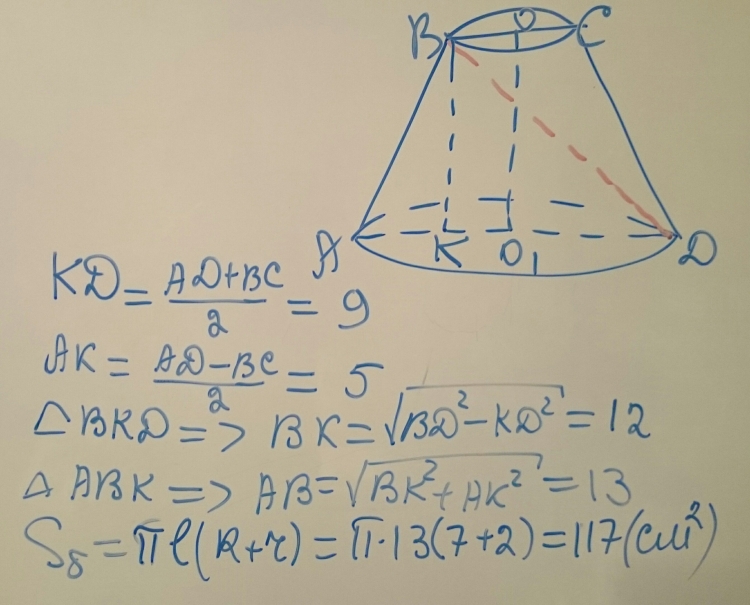 B O C
A K O₁ D
KD = (AD+BC)/2 = 9
AK = (AD−BC)/2 = 5
△BKD => BK = √(BD²−KD²) = 12
△ABK => AB = √(BK²+AK²) = 13
Sδ = πl(R+r) = π·13(7+2) = 117(см²)